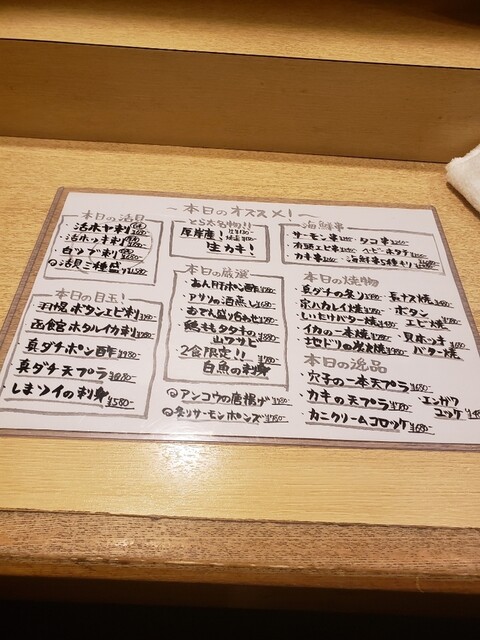 ～本日のオススメ！～
本日の活貝
・活ホヤ刺
・活ホッキ刺
・白ツブ刺
◎活貝三種盛 ¥1,580
本日の目玉！
・羽幌ボタンエビ刺
・函館ホタルイカ刺
・真ダチポン酢 ¥780
・真ダチ天プラ ¥880
・しまソイの刺身 ¥580
とら太名物！！
厚岸産！
生カキ！
本日の厳選
・あん肝ポン酢
・アサリの酒蒸し
・おでん盛り合わせ
・鶏ももタタキの
山ワサビ
2食限定！！
白魚の刺身
◎アンコウの唐揚げ
◎炙りサーモンポンズ
海鮮串
・サーモン串 ・タコ串
・有頭エビ串 ・ベビーホタテ
・カキ串 ・海鮮串5種
本日の焼物
・真ダチの炙り ・長ナス焼
・宗八カレイ焼 ・ボタン
・しいたけバター焼 エビ焼
・イカの一本焼 ・貝ホッキ
・地ドリの炭火焼 バター焼
本日の逸品
・穴子の一本天プラ ¥680
・カキの天プラ ・エンガワ
・カニクリームコロッケ ¥680 ユッケ